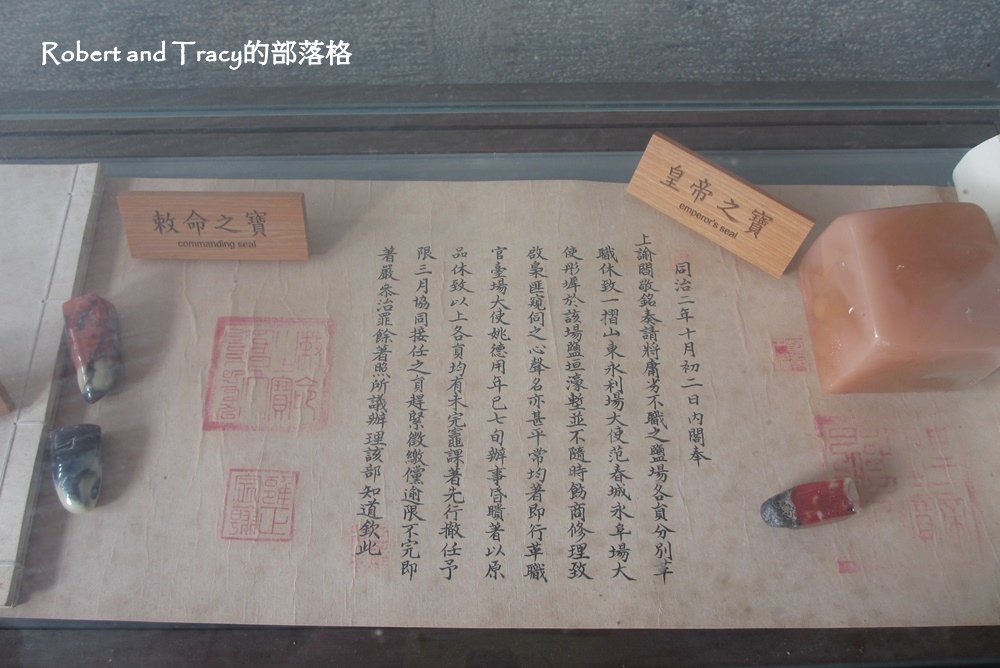 Robert and Tracy的部落格
敕命之寶
commanding seal
皇帝之寶
emperor's seal
同治二年十月初二日內閣奉
上諭閻敬銘奏請將庸劣不職之鹽場各員分別革
職休致一摺山東永利場大使范春城永阜場大
使彤墀於該場鹽垣濠塹並不隨時飭商修理致
啟梟匪窺伺之心聲名亦甚平常均著即行革職
官臺場大使姚德用年已七旬辦事昏瞶著以原
品休致以上各員均有未完竈課著先行撤任予
限三月協同接任之員趕緊徵繳儻逾限不完即
著嚴叅治罪餘著照所議辦理該部知道欽此
雍正